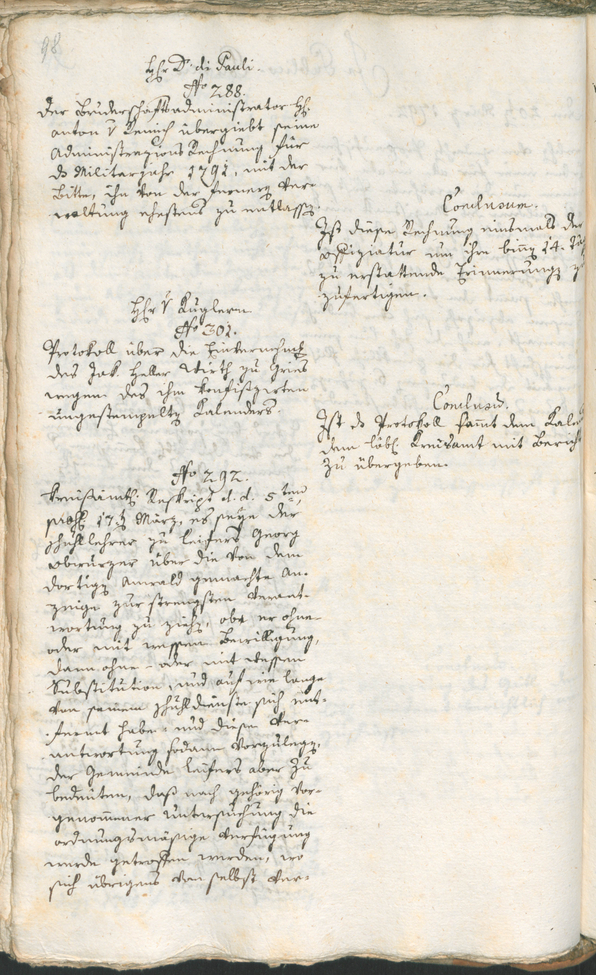 98
Hhr D. di Pauli.
No 288.
Der Bruderschaftsadministrator Hl.
Anton v Remich übergiebt seine
Administrazions Rechnung für
ds Militarjahr 1791, mit der
Bitte, ihn von der fernern Ver-
waltung ehestens zu entlassen.
Conclusum.
Ist diese Rechnung einsmals der
Offiziatur um ihre binnen 14. Täg
zu erstattende Erinnerungen
zuzufertigen.
Hhr v Kuglern
No 301.
Protokoll über die Einvernehmung
des Jak. Heller Wirth zu Gries
wegen des ihm konfiszirten
ungestempelten Kalenders.
Conclusum.
Ist ds Protokoll samt dem Kalen
dem löbl. Kreisamt mit Bericht
zu übergeben.
No 292.
Kreisämtl. Reskript d. d. 5ten
17ten März, es seye der
Schullehrer zu Leifers Georg
Obwurzer über die von dem
dortigen Anwald gemachte An-
zeige zur strengsten Verant-
wortung zu ziehen, ob er ohne
oder mit wessen Bewilligung,
dann ohne- oder mit wessen
Substitution, und auf wie lange
von seinem Schuldienste sich ent-
fernt habe, und diese Ver-
antwortung sodann vorzulegen,
der Gemeinde Leifers aber zu
bedeuten, daß nach gehörig vor-
genommener Untersuchung die
ordnungsmäßige Verfügung
werde getroffen werden, wo
sich übrigens von selbst ver-